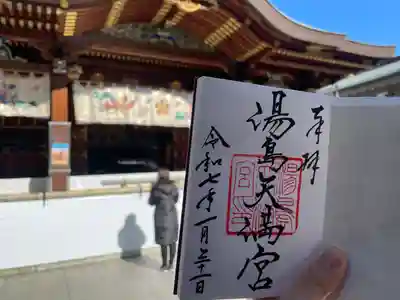 奉拝
湯島天満宮
令和七年一月三十一日